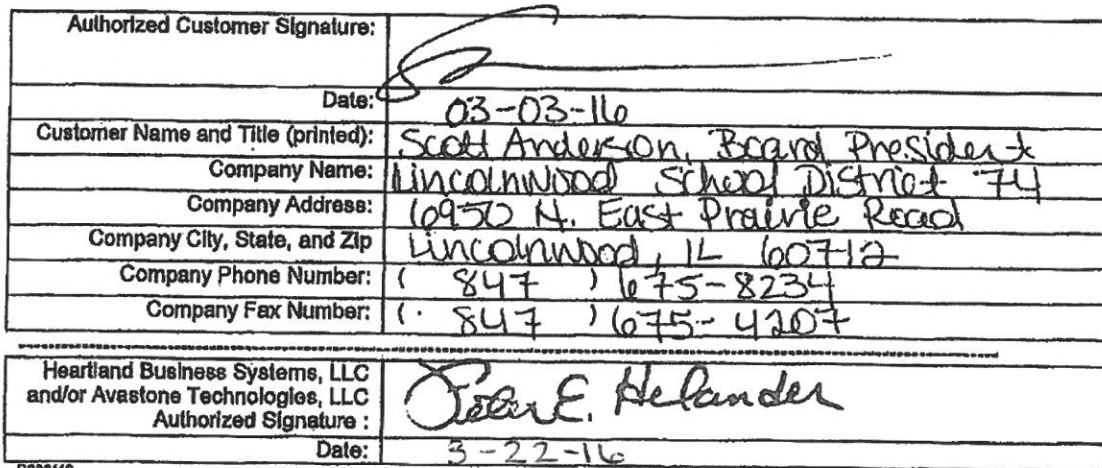 Authorized Customer Signature:
Date: 03-03-16
Customer Name and Title (printed): Scott Anderson, Board President
Company Name: Lincolnwood School District 74
Company Address: 6950 N. East Prairie Road
Company City, State, and Zip Lincolnwood, IL 60712
Company Phone Number: ( 847 ) 675-8234
Company Fax Number: ( 847 ) 675-4207
Heartland Business Systems, LLC
and/or Avastone Technologies, LLC
Authorized Signature : E. Helander
Date: 3-22-16